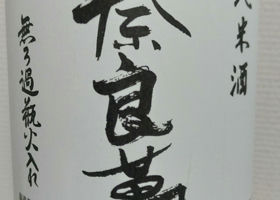 米酒
奈良萬
無ろ過瓶火入れ